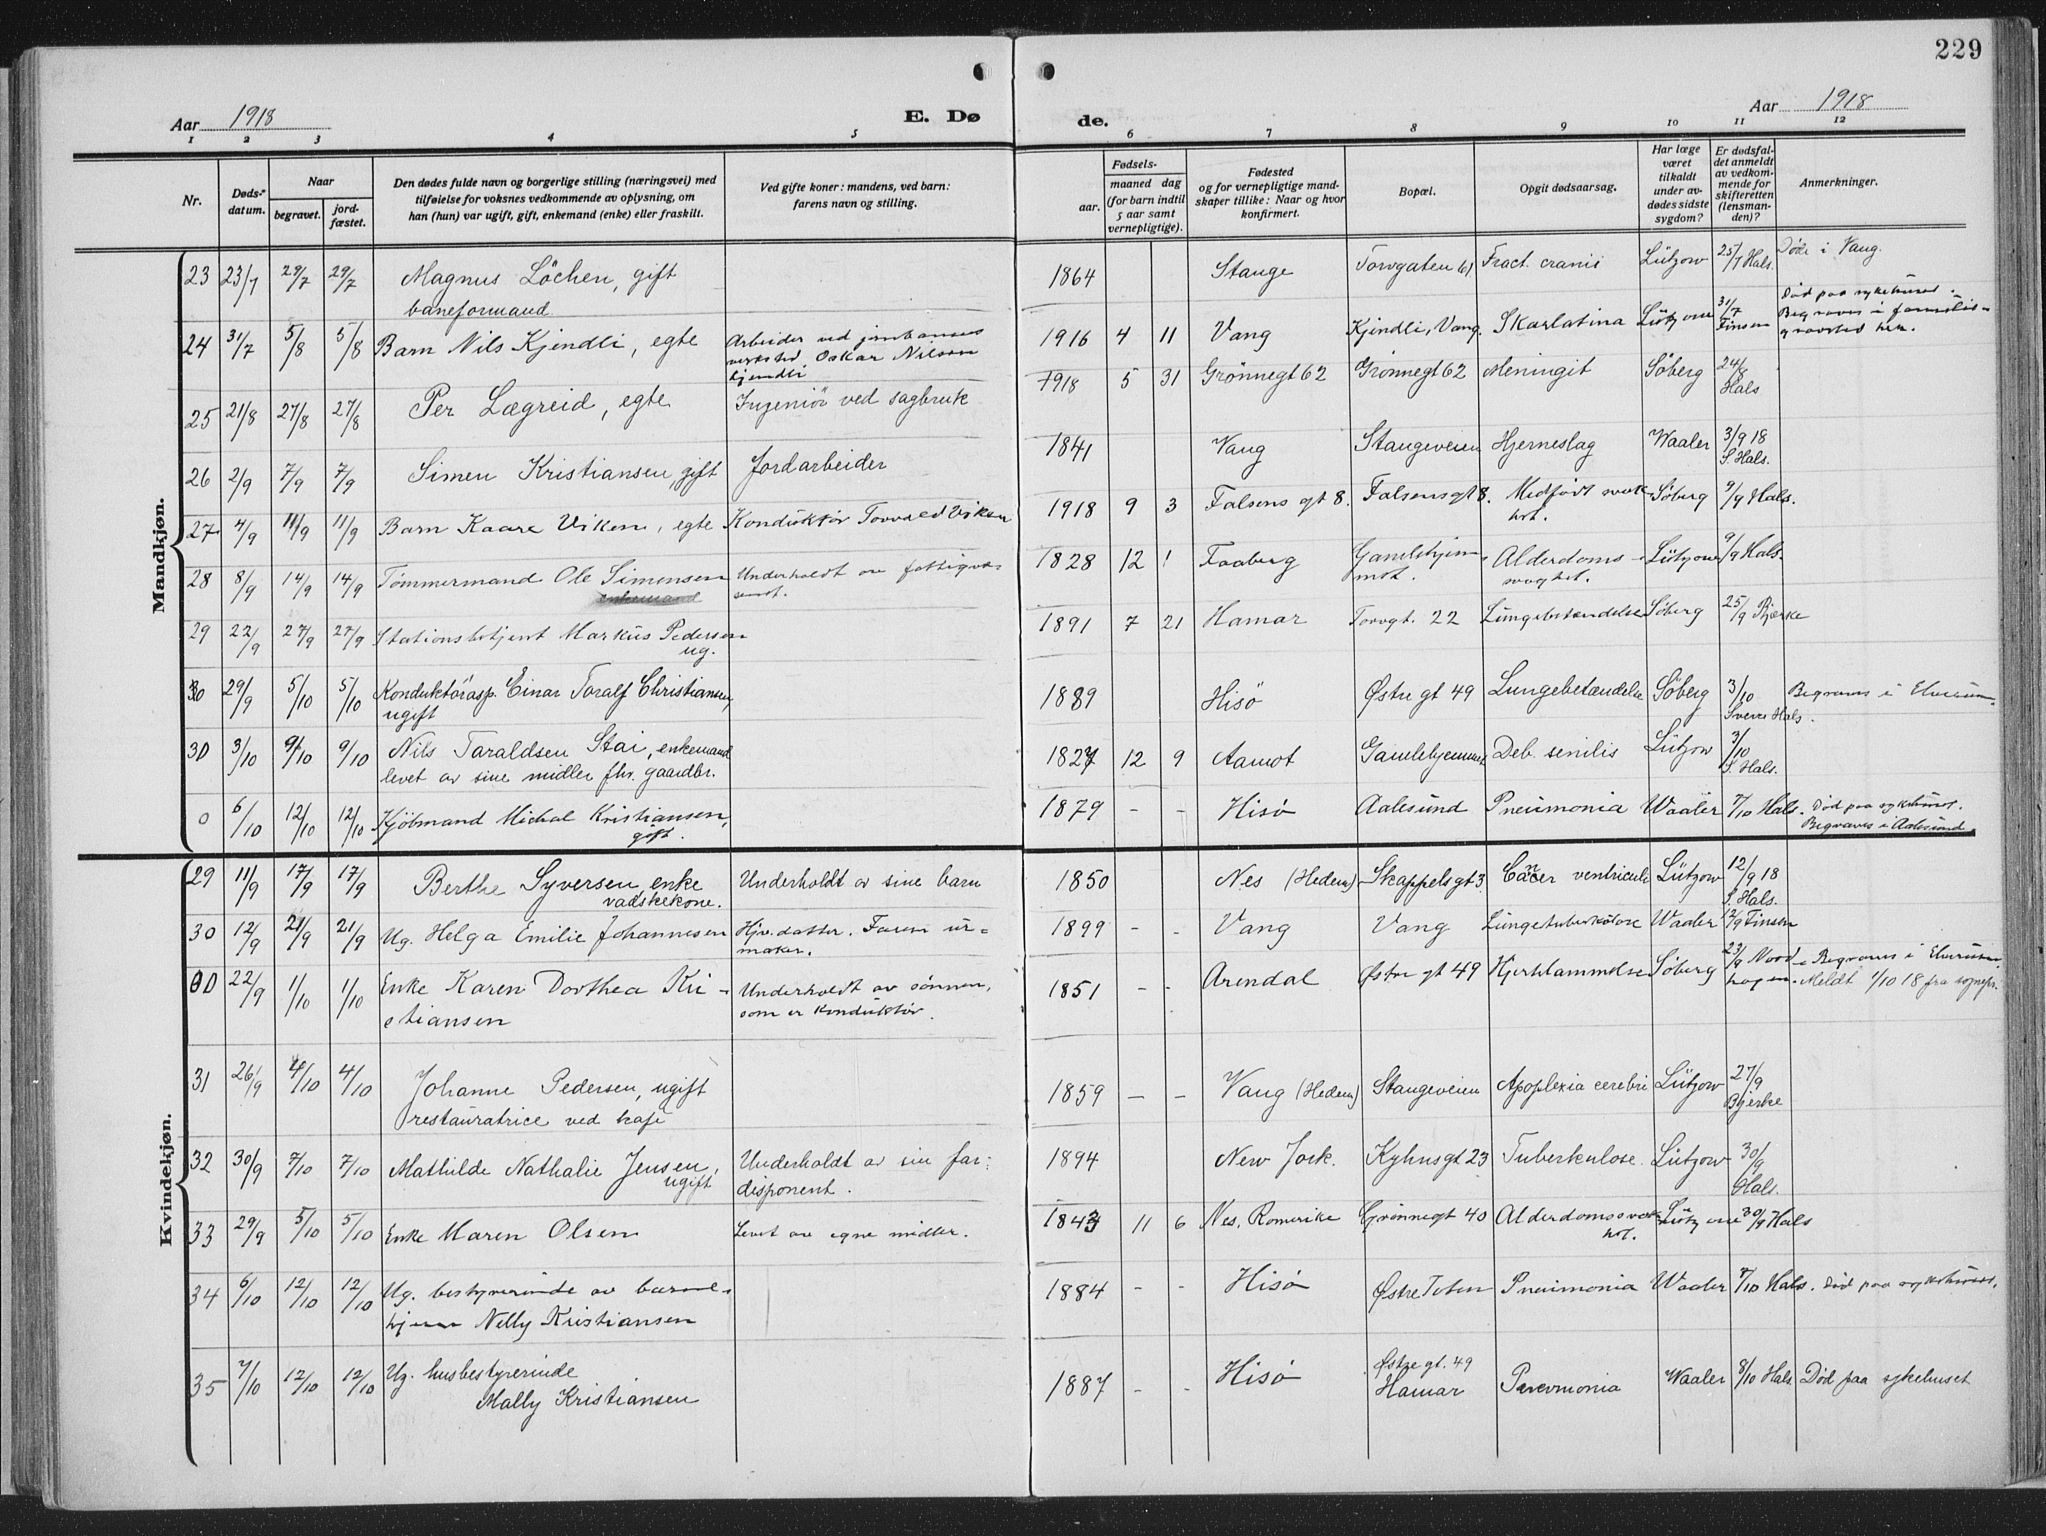 229
Aar 1918
E. Dø
de.
Aar 1918
1 2 3 4 5 6 7 8 9 10 11 12
Nr.
Døds-datum.
Naar
begravet.
jord-fæstet.
Den dødes fulde navn og borgerlige stilling (næringsvei) med
tilføielse for voksnes vedkommende av oplysning, om
han (hun) var ugift, gift, enkemand (enke) eller fraskilt.
Ved gifte koner: mandens, ved barn:
farens navn og stilling.
Fødsels-
aar.
maaned dag
(for barn indtil
5 aar samt
vernepligtige).
Fødested
og for vernepligtige mand-
skaper tillike: Naar og hvor
konfirmert.
Bopæl.
Opgit dødsaarsag.
Har læge
været
tilkaldt
under av-
dødes sidste
sygdom?
Er dødsfal-
det anmeldt
av vedkom-
mende for
skifteretten
(lensman-
den)?
Anmerkninger.
Mandkjøn.
23 23/7 29/7 29/7 Magnus Löchen, gift
baneformand
1864 Stange Torvgaten 61 Fract. cranii Lützow 25/7 Hals. Døde i Vang.
24 31/7 5/8 5/8 Barn Nils Kjendli, egte
Arbeider ved jernbanes
verksted Oskar Nilsen
Kjendli
1916 4 11 Vang Kjendli, Vang. Skarlatina Lützow 31/7 Finsen
Død paa sykehuset.
Begraves i familie-
gravsted her.
25 21/8 27/8 27/8 Per Lægreid, egte Ingeniör ved sagbruk
1918 5 31 Grönnegt 62 Grönnegt 62 Meningit Söberg 24/8 Hals
26 2/9 7/9 7/9 Simen Kristiansen, gift Jordarbeider
1841 Vang Stangeveien Hjerneslag Waaler 3/9 18 S. Hals.
27 4/9 11/9 11/9 Barn Kaare Viken, egte Konduktör Torvald Viken
1918 9 3 Falsens gt 8. Falsensgt 8. Medfödt svak-
het. Söberg 9/9 Hals.
28 8/9 14/9 14/9 Tömmermand Ole Simensen
enkemand
Underholdt av fattigvæ-
senet.
1828 12 1 Faaberg Gamlehjem-
met. Alderdoms-
svaghet. Lützow 9/9 Hals.
29 22/9 27/9 27/9 Stationsbetjent Markus Pedersen
ug.
1891 7 21 Hamar Torvgt. 22 Lungebetændelse Söberg 25/9 Bjerke
30 29/9 5/10 5/10 Konduktörasp. Einar Toralf Christiansen,
ugift
1889 Hisö Østre gt 49 Lungebetændelse Söberg 3/10 Sverre Hals. Begraves i Elverum.
30 3/10 9/10 9/10 Nils Taraldsen Stai, enkemand
levet av sine midler fhv. gaardbr.
1827 12 9 Aamot Gamlehjemmet Deb. senilis Lützow 3/10 S. Hals.
0 6/10 12/10 12/10 Kjöbmand Michal Kristiansen,
gift.
1879 - - Hisö Aalesund Pneumonia Waaler 7/10 Hals. Død paa sykehuset.
Begraves i Aalesund
Kvindekjøn.
29 11/9 17/9 17/9 Berthe Syversen, enke
vadskekone.
Underholdt av sine barn
1850 Nes (Hedem) Skappelsgt 3. Cancer ventriculi Lützow 12/9 18 S. Hals.
30 12/9 21/9 21/9 Ug. Helga Emilie Johannesen Hjv. datter. Faren ur-
maker.
1899 - - Vang Vang Lungetuberkulose Waaler 12/9 Finsen
00 22/9 1/10 1/10 Enke Karen Dorthea Kri-
stiansen
Underholdt av sønnen,
som er konduktör.
1851 - - Arendal Østre gt 49 Hjertelammelse Söberg 23/9 Nord-
hagen. Begraves i Elverum.
Meldt 1/10 18 fra sognepr.
31 26/9 4/10 4/10 Johanne Pedersen, ugift
restauratrice ved kafé
1859 - - Vang (Hedem) Stangeveien Apoplexia cerebri Lützow 27/9 Bjerke
32 30/9 7/10 7/10 Mathilde Nathalie Jensen,
ugift
Underholdt av sin far:
disponent.
1894 New Jork. Kyhnsgt 23 Tuberkulose. Lützow 30/9 Hals.
33 29/9 5/10 5/10 Enke Maren Olsen Levet av egne midler.
1843 11 6 Nes, Romerike Grönnegt 40 Alderdomssvak-
het. Lützow 30/9 Hals
34 6/10 12/10 12/10 Ug. bestyrerinde av barne-
hjem Nelly Kristiansen
1884 - - Hisö Østre Toten Pneumonia Waaler 7/10 Hals. Död paa sykehuset.
35 7/10 12/10 12/10 Ug. husbestyrerinde
Mally Kristiansen
1887 - - Hisö Østre gt. 49
Hamar Pnevmonia Waaler 8/10 Hals. Död paa sykehuset